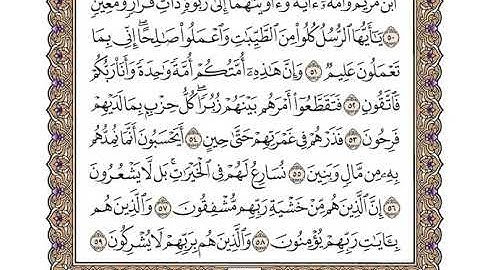 ٱبْنَ مَرْيَمَ وَأُمَّهُۥٓ ءَايَةً وَءَاوَيْنَٰهُمَآ إِلَىٰ رَبْوَةٍ ذَاتِ قَرَارٍ وَمَعِينٍ
٥٠ يَٰٓأَيُّهَا ٱلرُّسُلُ كُلُوا۟ مِنَ ٱلطَّيِّبَٰتِ وَٱعْمَلُوا۟ صَٰلِحًا ۖ إِنِّى بِمَا
تَعْمَلُونَ عَلِيمٌ ٥١ وَإِنَّ هَٰذِهِۦٓ أُمَّتُكُمْ أُمَّةً وَٰحِدَةً وَأَنَا۠ رَبُّكُمْ
فَٱتَّقُونِ ٥٢ فَتَقَطَّعُوٓا۟ أَمْرَهُم بَيْنَهُمْ زُبُرًا ۖ كُلُّ حِزْبٍۭ بِمَا لَدَيْهِمْ
فَرِحُونَ ٥٣ فَذَرْهُمْ فِى غَمْرَتِهِمْ حَتَّىٰ حِينٍ ٥٤ أَيَحْسَبُونَ أَنَّمَا نُمِدُّهُم
بِهِۦ مِن مَّالٍ وَبَنِينَ ٥٥ نُسَارِعُ لَهُمْ فِى ٱلْخَيْرَٰتِ ۚ بَل لَّا يَشْعُرُونَ
٥٦ إِنَّ ٱلَّذِينَ هُم مِّنْ خَشْيَةِ رَبِّهِم مُّشْفِقُونَ ٥٧ وَٱلَّذِينَ هُم
بِـَٔايَٰتِ رَبِّهِمْ يُؤْمِنُونَ ٥٨ وَٱلَّذِينَ هُم بِرَبِّهِمْ لَا يُشْرِكُونَ ٥٩